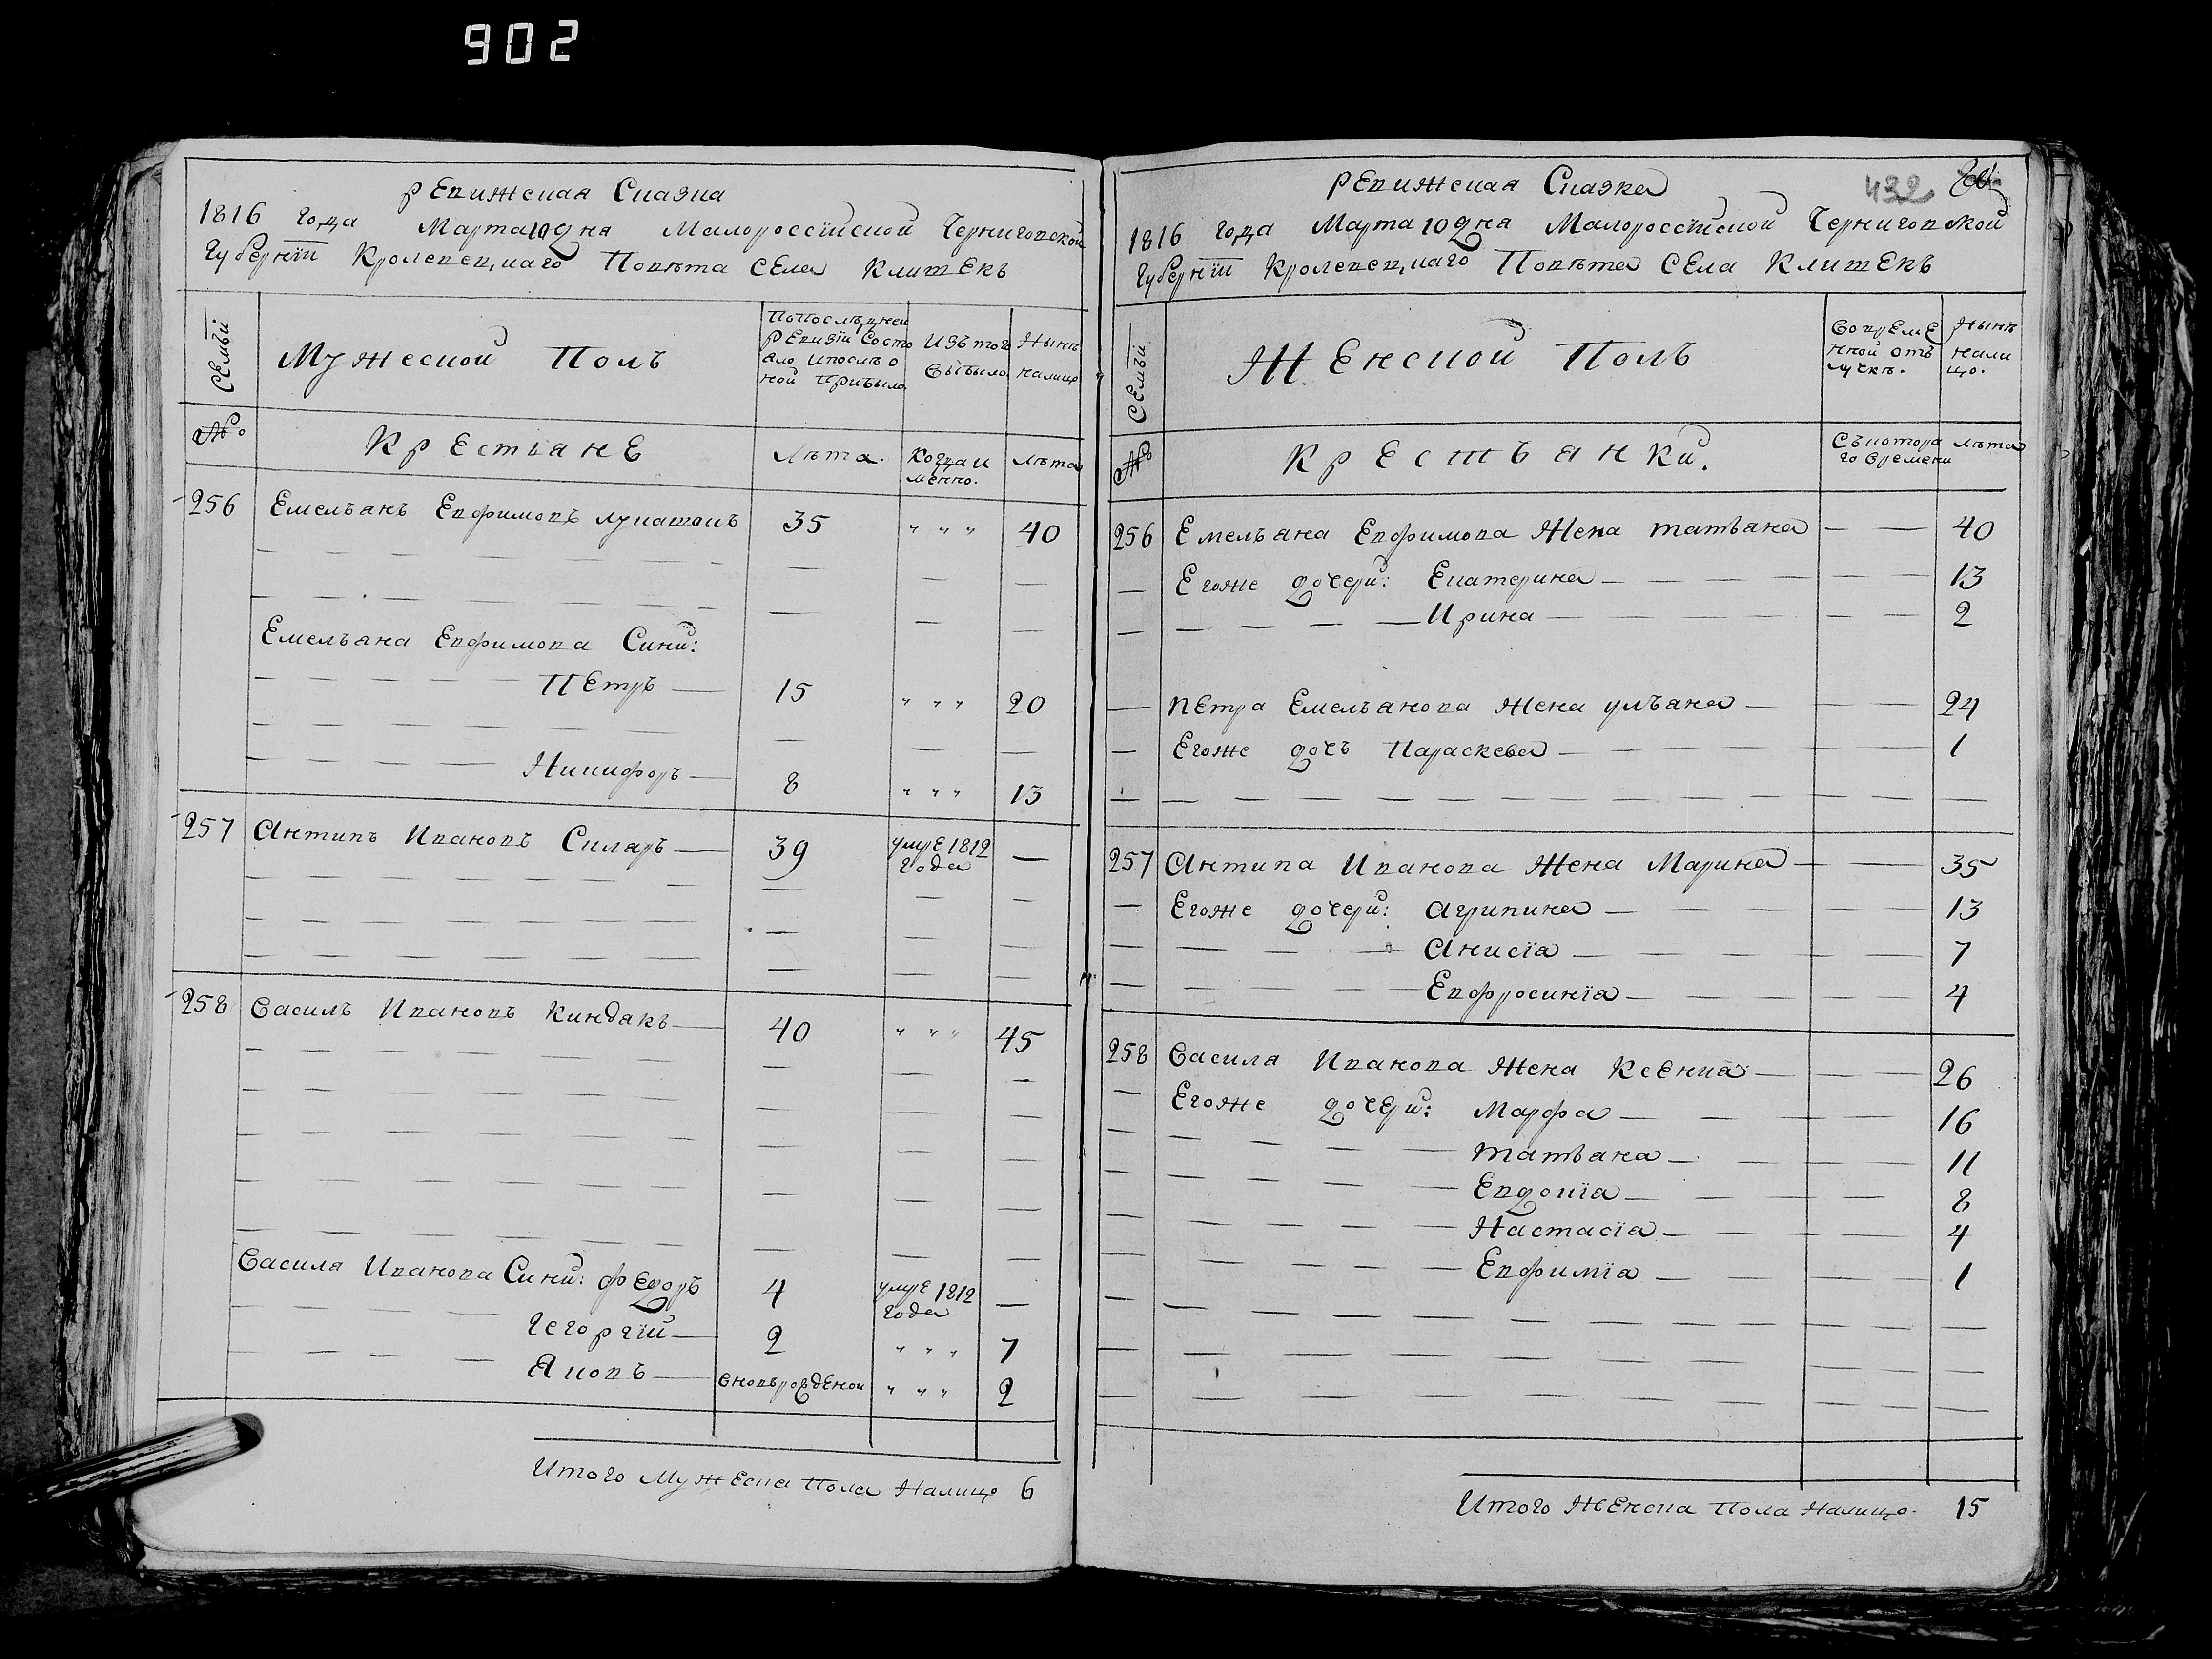 902
Ревижская Сказка
1816 года Марта 10 дня Малороссїйской Черниговской
Губернїи Кролевецкаго Повѣта Села Клишекъ
Семьи
Мужеской Полъ
По последней ревизїи состояло и после оной прибыло
Изъ того выбыло
Нынѣ налицо
№
Крестьяне
Лѣта.
Когда именно.
Лѣта
256 Емельянъ Евфимовъ 35 " " " 40
Емельяна Евфимова Сини:
Петръ 15 " " " 20
Никифоръ 8 " " " 13
257 Антипъ Ивановъ Силаръ 39 умре 1812 года —
258 Василъ Ивановъ Киндакъ 40 " " " 45
Василя Иванова Сини: Федоръ 4 умре 1812 года —
Георгїй 2 " " " 7
Яковъ вновьрожденой " " " 2
Итого Мужеска Пола Налицо 6
Ревижская Сказка
432
1816 года Марта 10 дня Малороссїйской Черниговской
Губернїи Кролевецкаго Повѣта Села Клишекъ
Семьи
Женской Полъ
Во временной отлучкѣ.
Нынѣ налицо.
№
Крестьянки.
Съ котораго времени
Лѣта
256 Емельяна Евфимова Жена Татьяна — — 40
Егоже дочери: Екатерина — 13
Ирина — 2
Петра Емельянова Жена Ульяна — 24
Егоже дочь Параскева — 1
257 Антипа Иванова Жена Марина — 35
Егоже дочери: Агрипина — 13
Анисїа — 7
Евфросинїа — 4
258 Василя Иванова Жена Ксенїа — 26
Егоже дочери: Марфа — 16
Татьяна — 11
Евдокїа — 8
Настасїа — 4
Евфимїа — 1
Итого Женска Пола Налицо. 15